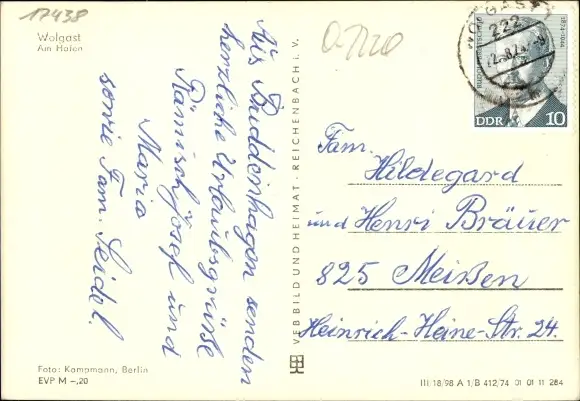 17438
Wolgast
Am Hafen
Aus Buddenhagen senden
herzliche Urlaubsgrüße
Ramisch Josef und
Maria
sowie Fam. Seidel.
Foto: Kampmann, Berlin
EVP M –,20
VEB BILD UND HEIMAT · REICHENBACH i. V.
WOLGAST
222
DDR 10
Fam.
Hildegard
und Henri Bräuer
825 Meißen
Heinrich-Heine-Str. 24.
III/18/98 A 1/B 412/74 01 01 11 284